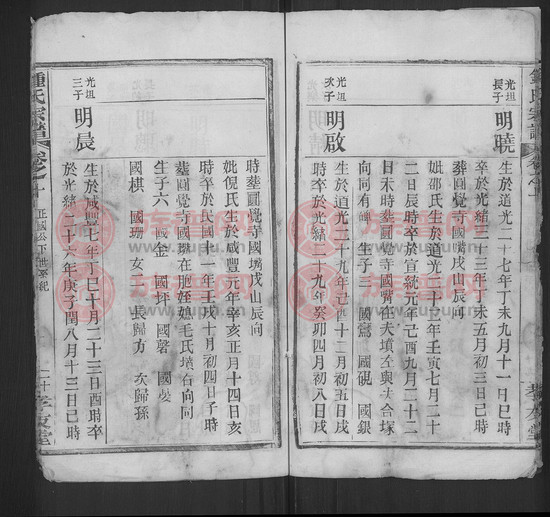 鍾氏宗譜
卷之十
孝友堂
光垣長子
明曉
生於道光二十七年丁未九月十一日巳時
卒於光緒三十三年丁未五月初三日巳時
葬圓覺寺國嘴戌山辰向
妣邵氏生於道光二十二年壬寅七月二十
二日辰時卒於宣統元年己酉九月二十二
日未時葬圓覺寺嘴古大墳左與夫合塚
向同有碑 生子三 國鸞 國硯 國銀
光垣次子
明啟
生於道光二十九年己酉十二月初五日戌
時卒於光緒二十九年癸卯四月初八日戌
時葬圓覺寺國嘴戌山辰向
妣倪氏生於咸豐元年辛亥正月十四日亥
時卒於民國十一年壬戌十月初四日子時
葬圓覺寺國 在胞姪媳毛氏墳右向同
生子六 國金 國坪 國磬 國
國棋 國 女二 長歸方 次歸孫
光垣三子
明晨
生於咸豐七年丁巳十月二十三日酉時卒
於光緒二十六年庚子閏八月十三日巳時
鍾氏宗譜
卷之十
正國公下世系紀
二十
孝友堂
族譜网
www.zupu.cn